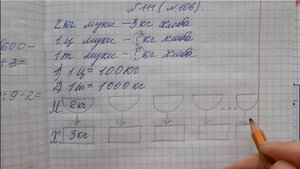 № 111 (№ 106)
2кг муки – 3кг хлеба
1 ц муки – ?кг хлеба
1т муки – ?кг хлеба
1) 1 ц = 100кг
2) 1т = 1000 кг
М. 2кг
Х. 3кг
600 –
+3=
:9·2=